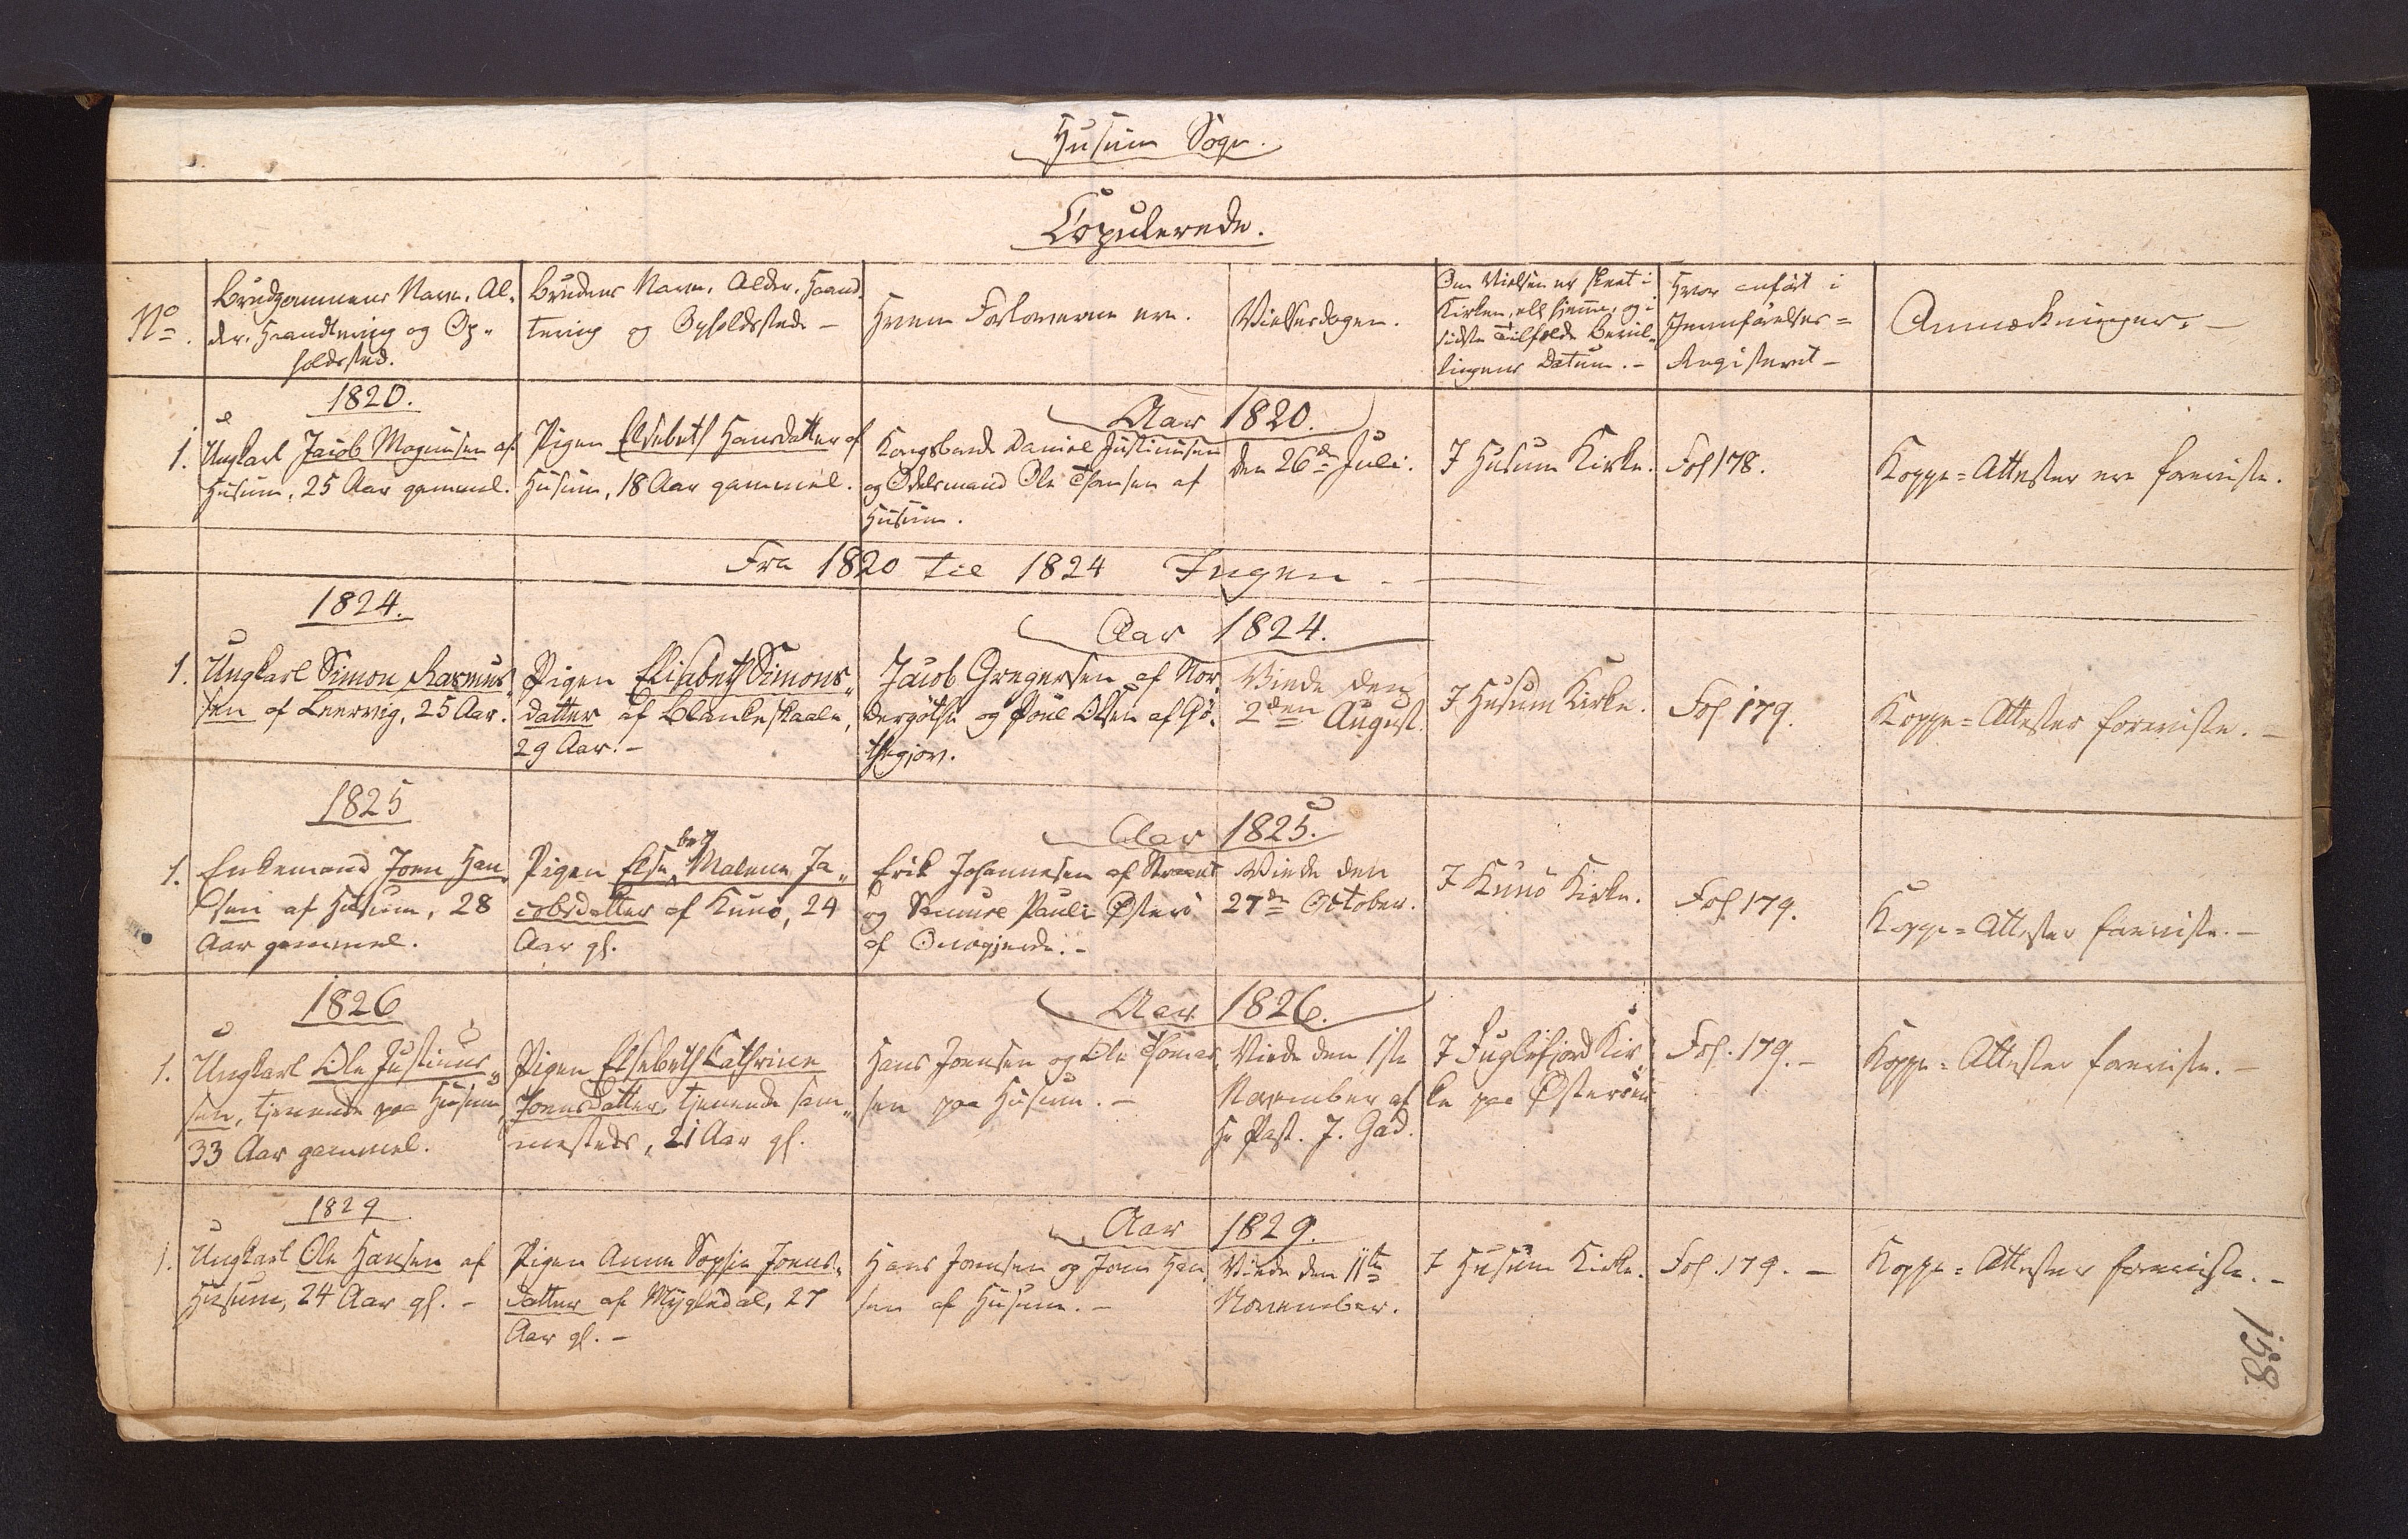 Husum Sogn.
Copulerede.
No.
Brudgommens Navn, Al-
der, Haandtering og Op-
holdssted.
Brudens Navn, Alder, Haand-
tering og Opholdssted –
Hvem Forloverne ere.
Vielsesdagen.
Om Vielsen er skeet i
Kirken, ell. hjemme, og i
sidste Tilfælde Bevil-
lingens Datum. –
Hvor anført i
Jevnførelses-
Registeret –
Anmærkninger. –
1820.
Aar 1820.
1.
Ungkarl Jacob Magnussen af
Husum, 25 Aar gammel.
Pigen Elsebeth Hansdatter af
Husum, 18 Aar gammel.
Kongsbonde Daniel Justinussen
og Odelsmand Ole Thomsen af
Husum.
den 26de Juli.
I Husum Kirke.
Fol 178.
Koppe-Attester ere foreviste.
Fra 1820 til 1824 Ingen –
1824.
Aar 1824.
1.
Ungkarl Simon Rasmus-
sen af Leervig, 25 Aar.
Pigen Elisabeth Simons-
datter af Blankeskaale,
29 Aar. –
Jacob Gregersen af Nor-
dergøthe og Poul Olsen af Gø-
thegjov.
Viede den
2den August.
I Husum Kirke.
Fol 179.
Koppe-Attester foreviste. –
1825
Aar 1825.
1.
Enkemand Joen Han-
sen af Husum, 28
Aar gammel.
beth
Pigen Else Malene Ja-
cobsdatter af Kunø, 24
Aar gl.
Erik Johannesen af
og Samuel Pauli Østerø
af
Viede den
27de October.
I Kunø Kirke.
Fol. 179.
Koppe-Attester foreviste. –
1826
Aar 1826.
1.
Ungkarl Ole Justinus-
sen, tjenende paa Husum
33 Aar gammel.
Pigen Elsebeth Cathrine
Joensdatter, tjenende sam-
mesteds, 21 Aar gl.
Hans Joensen og Ole Thomas-
sen paa Husum. –
Viede den 1ste
November af
Hr Past. J. Gad.
I Fuglefjord Kir-
ke paa Østerøen
Fol. 179. –
Koppe-Attester foreviste. –
1829
Aar 1829.
1.
Ungkarl Ole Hansen af
Husum, 24 Aar gl. –
Pigen Anne Sophie Joens-
datter af Mygledal, 27
Aar gl. –
Hans Joensen og Joen Han-
sen af Husum. –
Viede den 11te
November.
I Husum Kirke.
Fol. 179. –
Koppe-Attester foreviste. –
158.